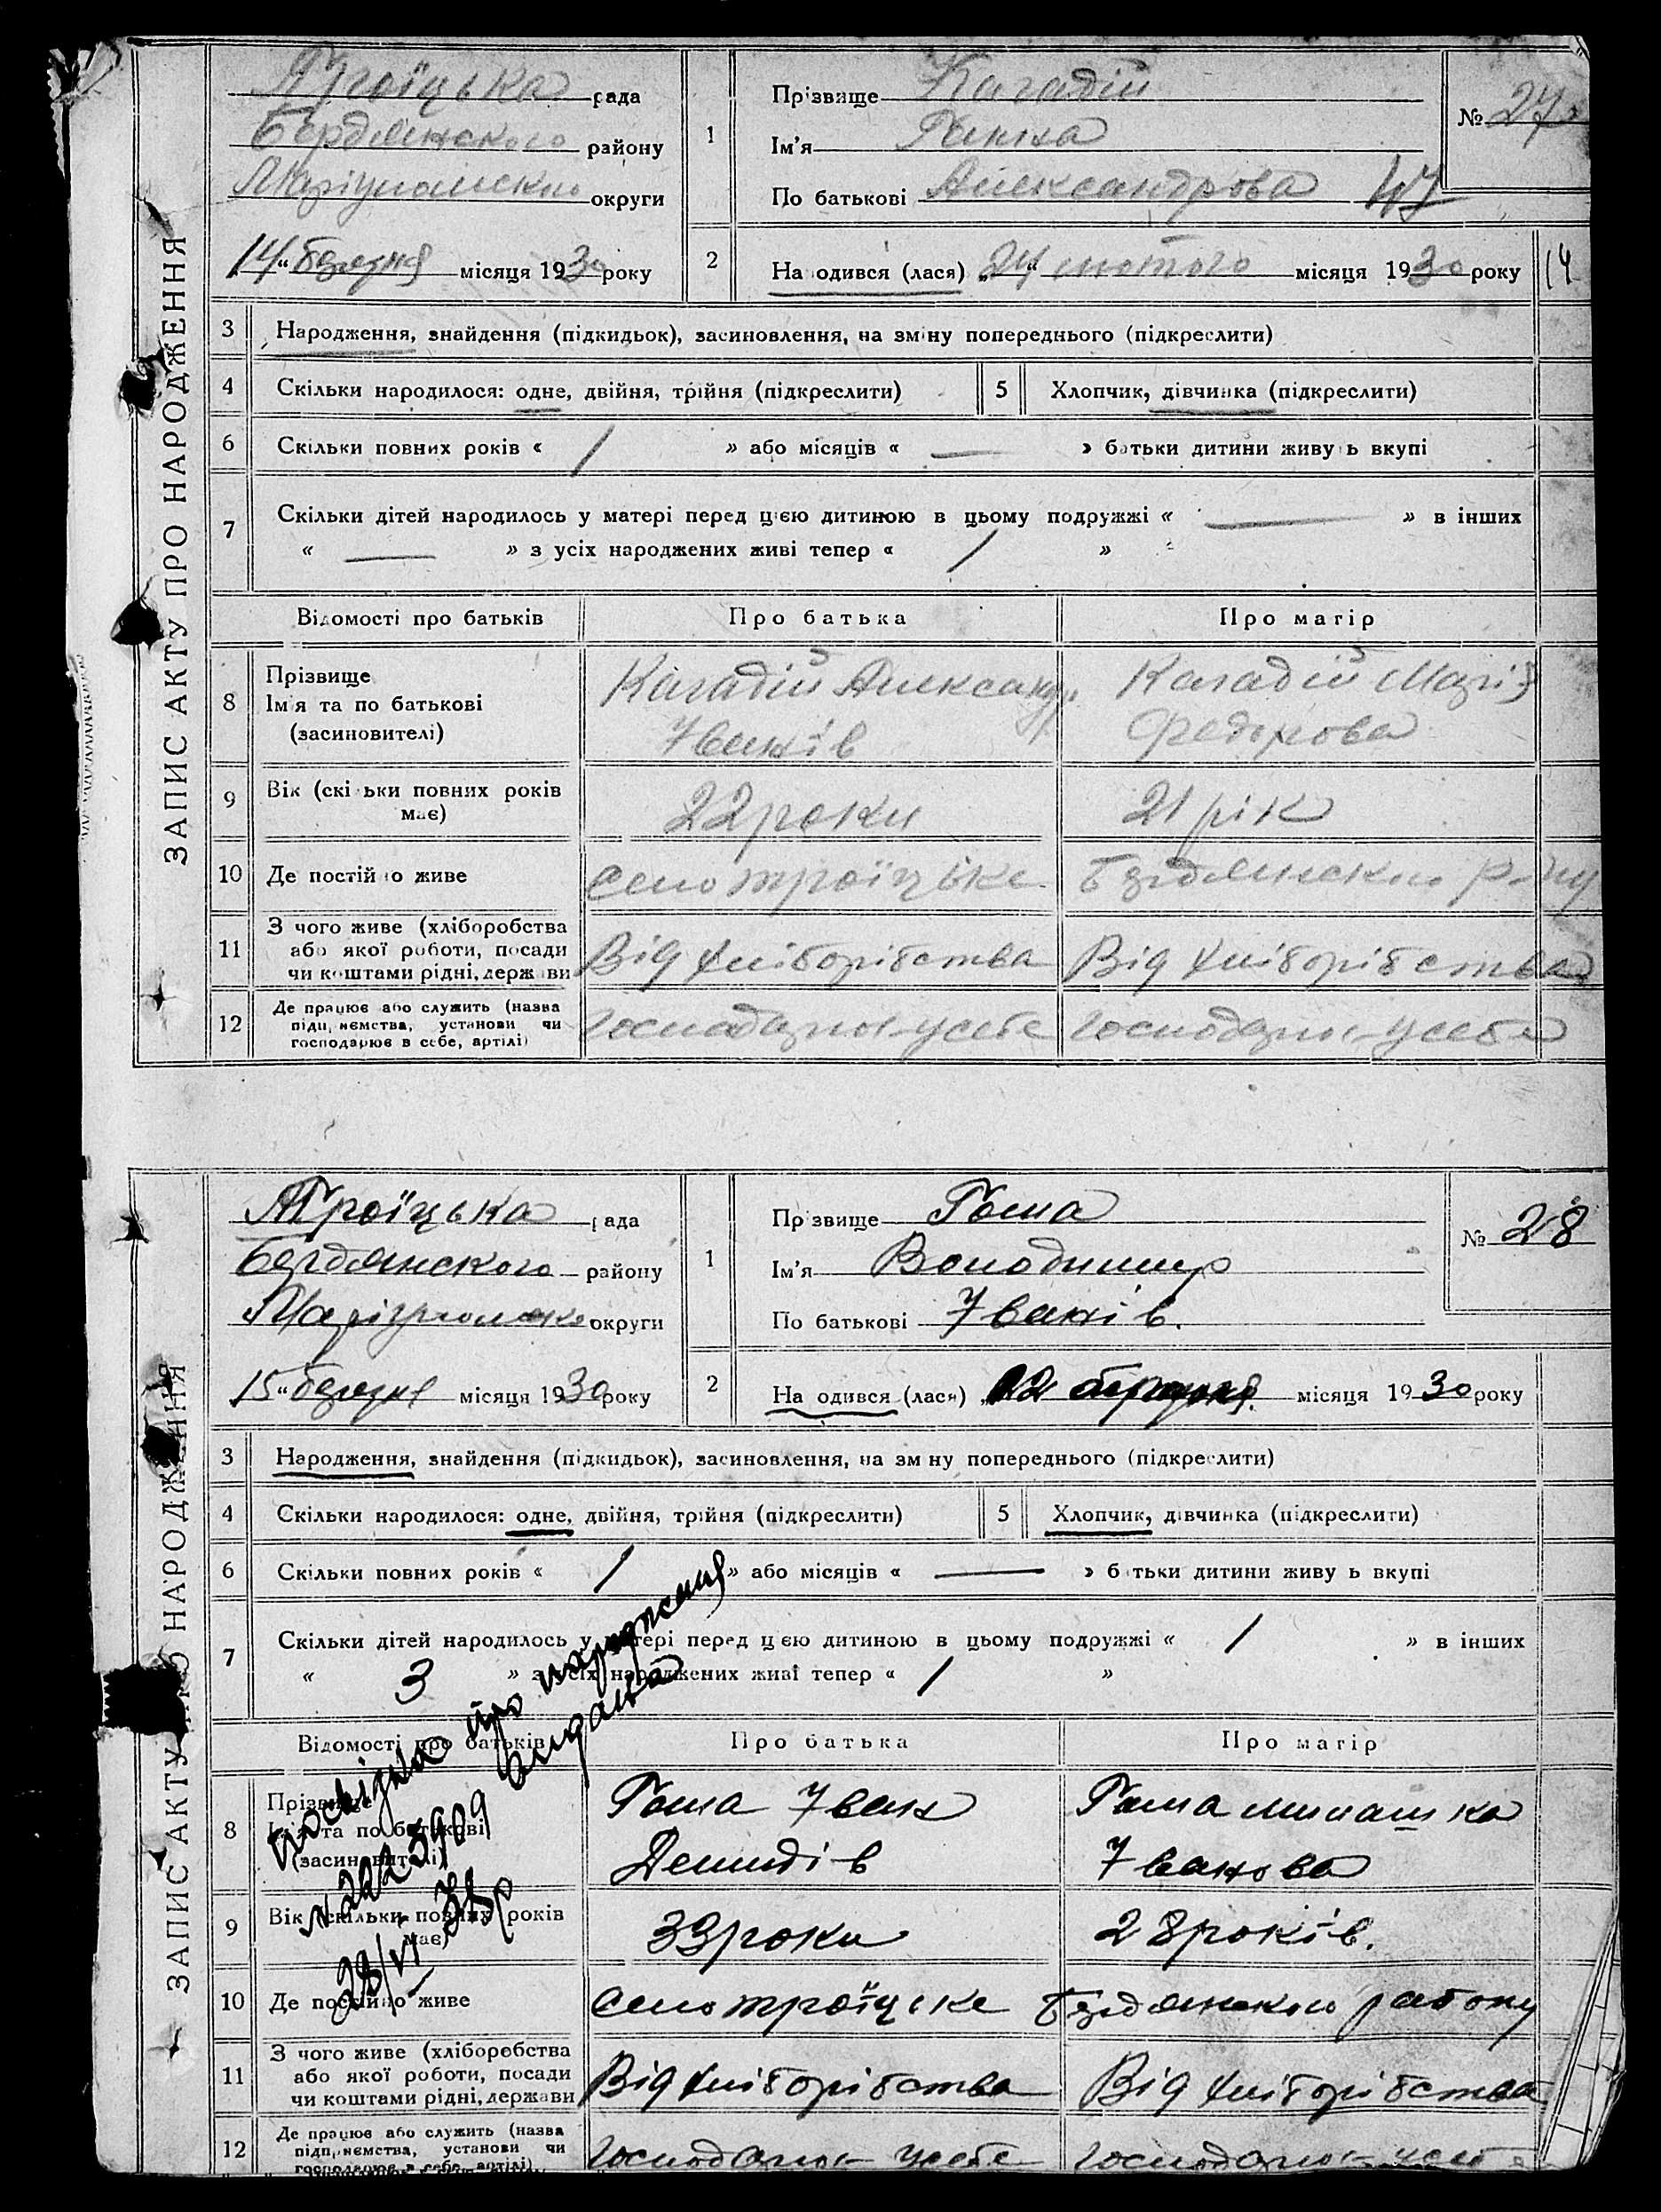 ЗАПИС АКТУ ПРО НАРОДЖЕННЯ
Троїцька рада
Бердянского району
Маріупольско округи
14 „ березня місяця 1930 року
1
Прізвище Кагадій
Ім'я Ганна
По батькові Александрова
№ 27
47
2
На одився (лася) „24 „ лютого місяця 1930 року
14
3 Народження, знайдення (підкидьок), засиновлення, на зміну попереднього (підкреслити)
4 Скільки народилося: одне, двійня, трійня (підкреслити) 5 Хлопчик, дівчинка (підкреслити)
6 Скільки повних років « / » або місяців « — » батьки дитини живу ь вкупі
7 Скільки дітей народилось у матері перед цією дитиною в цьому подружжі « — » в інших
« — » з усіх народжених живі тепер « / »
Відомості про батьків Про батька Про матір
8 Прізвище
Ім'я та по батькові
(засиновителі)
Кагадій Александр
Іванів
Кагадій Марія
Федорова
9 Вік (скі ьки повних років
має)
22 роки 21 рік
10 Де постійно живе село троїцьке Бердянского р-ну
11 З чого живе (хліборобства
або якої роботи, посади
чи коштами рідні, держави
Від хліборібства Від хліборібства
12 Де працює або служить (назва
підприємства, установи чи
господарює в себе, артілі)
Господарює усебе Господарює усебе
ЗАПИС АКТУ ПРО НАРОДЖЕННЯ
Троїцька рада
Бердянского району
Маріуполско округи
15 „ березня місяця 1930 року
1
Прізвище Гоша
Ім'я Володимир
По батькові Іванів.
№ 28
2
На одився (лася) „ місяця 1930 року
3 Народження, знайдення (підкидьок), засиновлення, на зм ну попереднього (підкреслити)
4 Скільки народилося: одне, двійня, трійня (підкреслити) 5 Хлопчик, дівчинка (підкреслити)
6 Скільки повних років « / » або місяців « — » б тьки дитини живу ь вкупі
7 Скільки дітей народилось у матері перед цією дитиною в цьому подружжі « / » в інших
« 3 » з усіх народжених живі тепер « / »
Посвідка про народження
видана
№ 2223909
28/VI
Відомості про батьків Про батька Про матір
8 Прізвище
Ім'я та по батькові
(засиновителі)
Гоша Іван
Демидів
Гоша
Іванова
9 Вік (скільки повних років
має)
33 роки 28 років.
10 Де постійно живе село троїцьке Бердянского району
11 З чого живе (хліборобства
або якої роботи, посади
чи коштами рідні, держави
Від хліборібства Від хліборібства
12 Де працює або служить (назва
підприємства, установи чи
господарює в себе, артілі)
Господарює усебе Господарює усеб